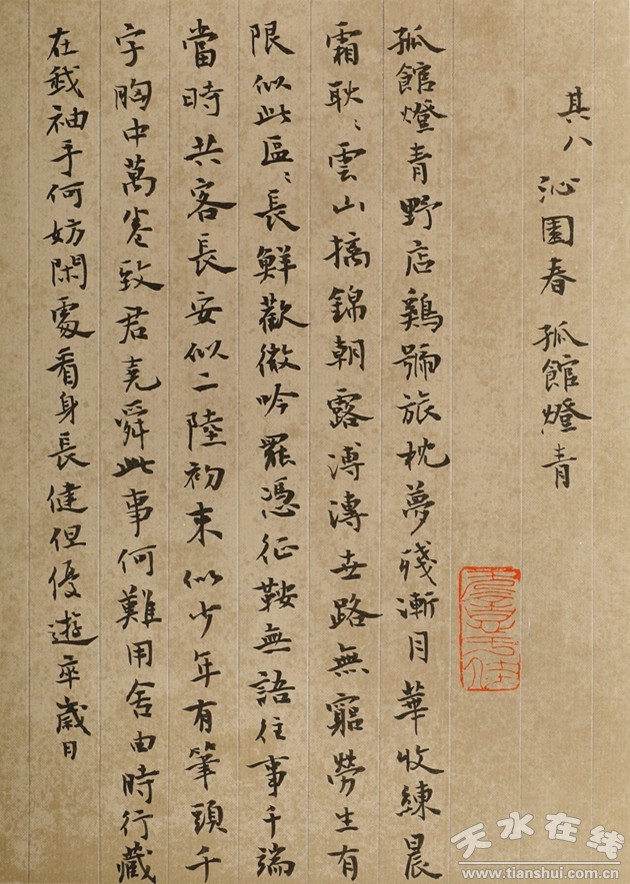 其八 沁園春 孤館燈青
孤館燈青野店鷄號旅枕夢殘漸月華收練晨
霜耿〻雲山摛錦朝露漙漙世路無窮勞生有
限似此區〻長鮮歡微吟罷憑征鞍無語往事千端
當時共客長安似二陸初来似少年有筆頭千
字胸中萬卷致君堯舜此事何難用舍由時行藏
在我袖手何妨閑處看身長健但優遊卒歲且
天水在线
www.tianshui.com.cn